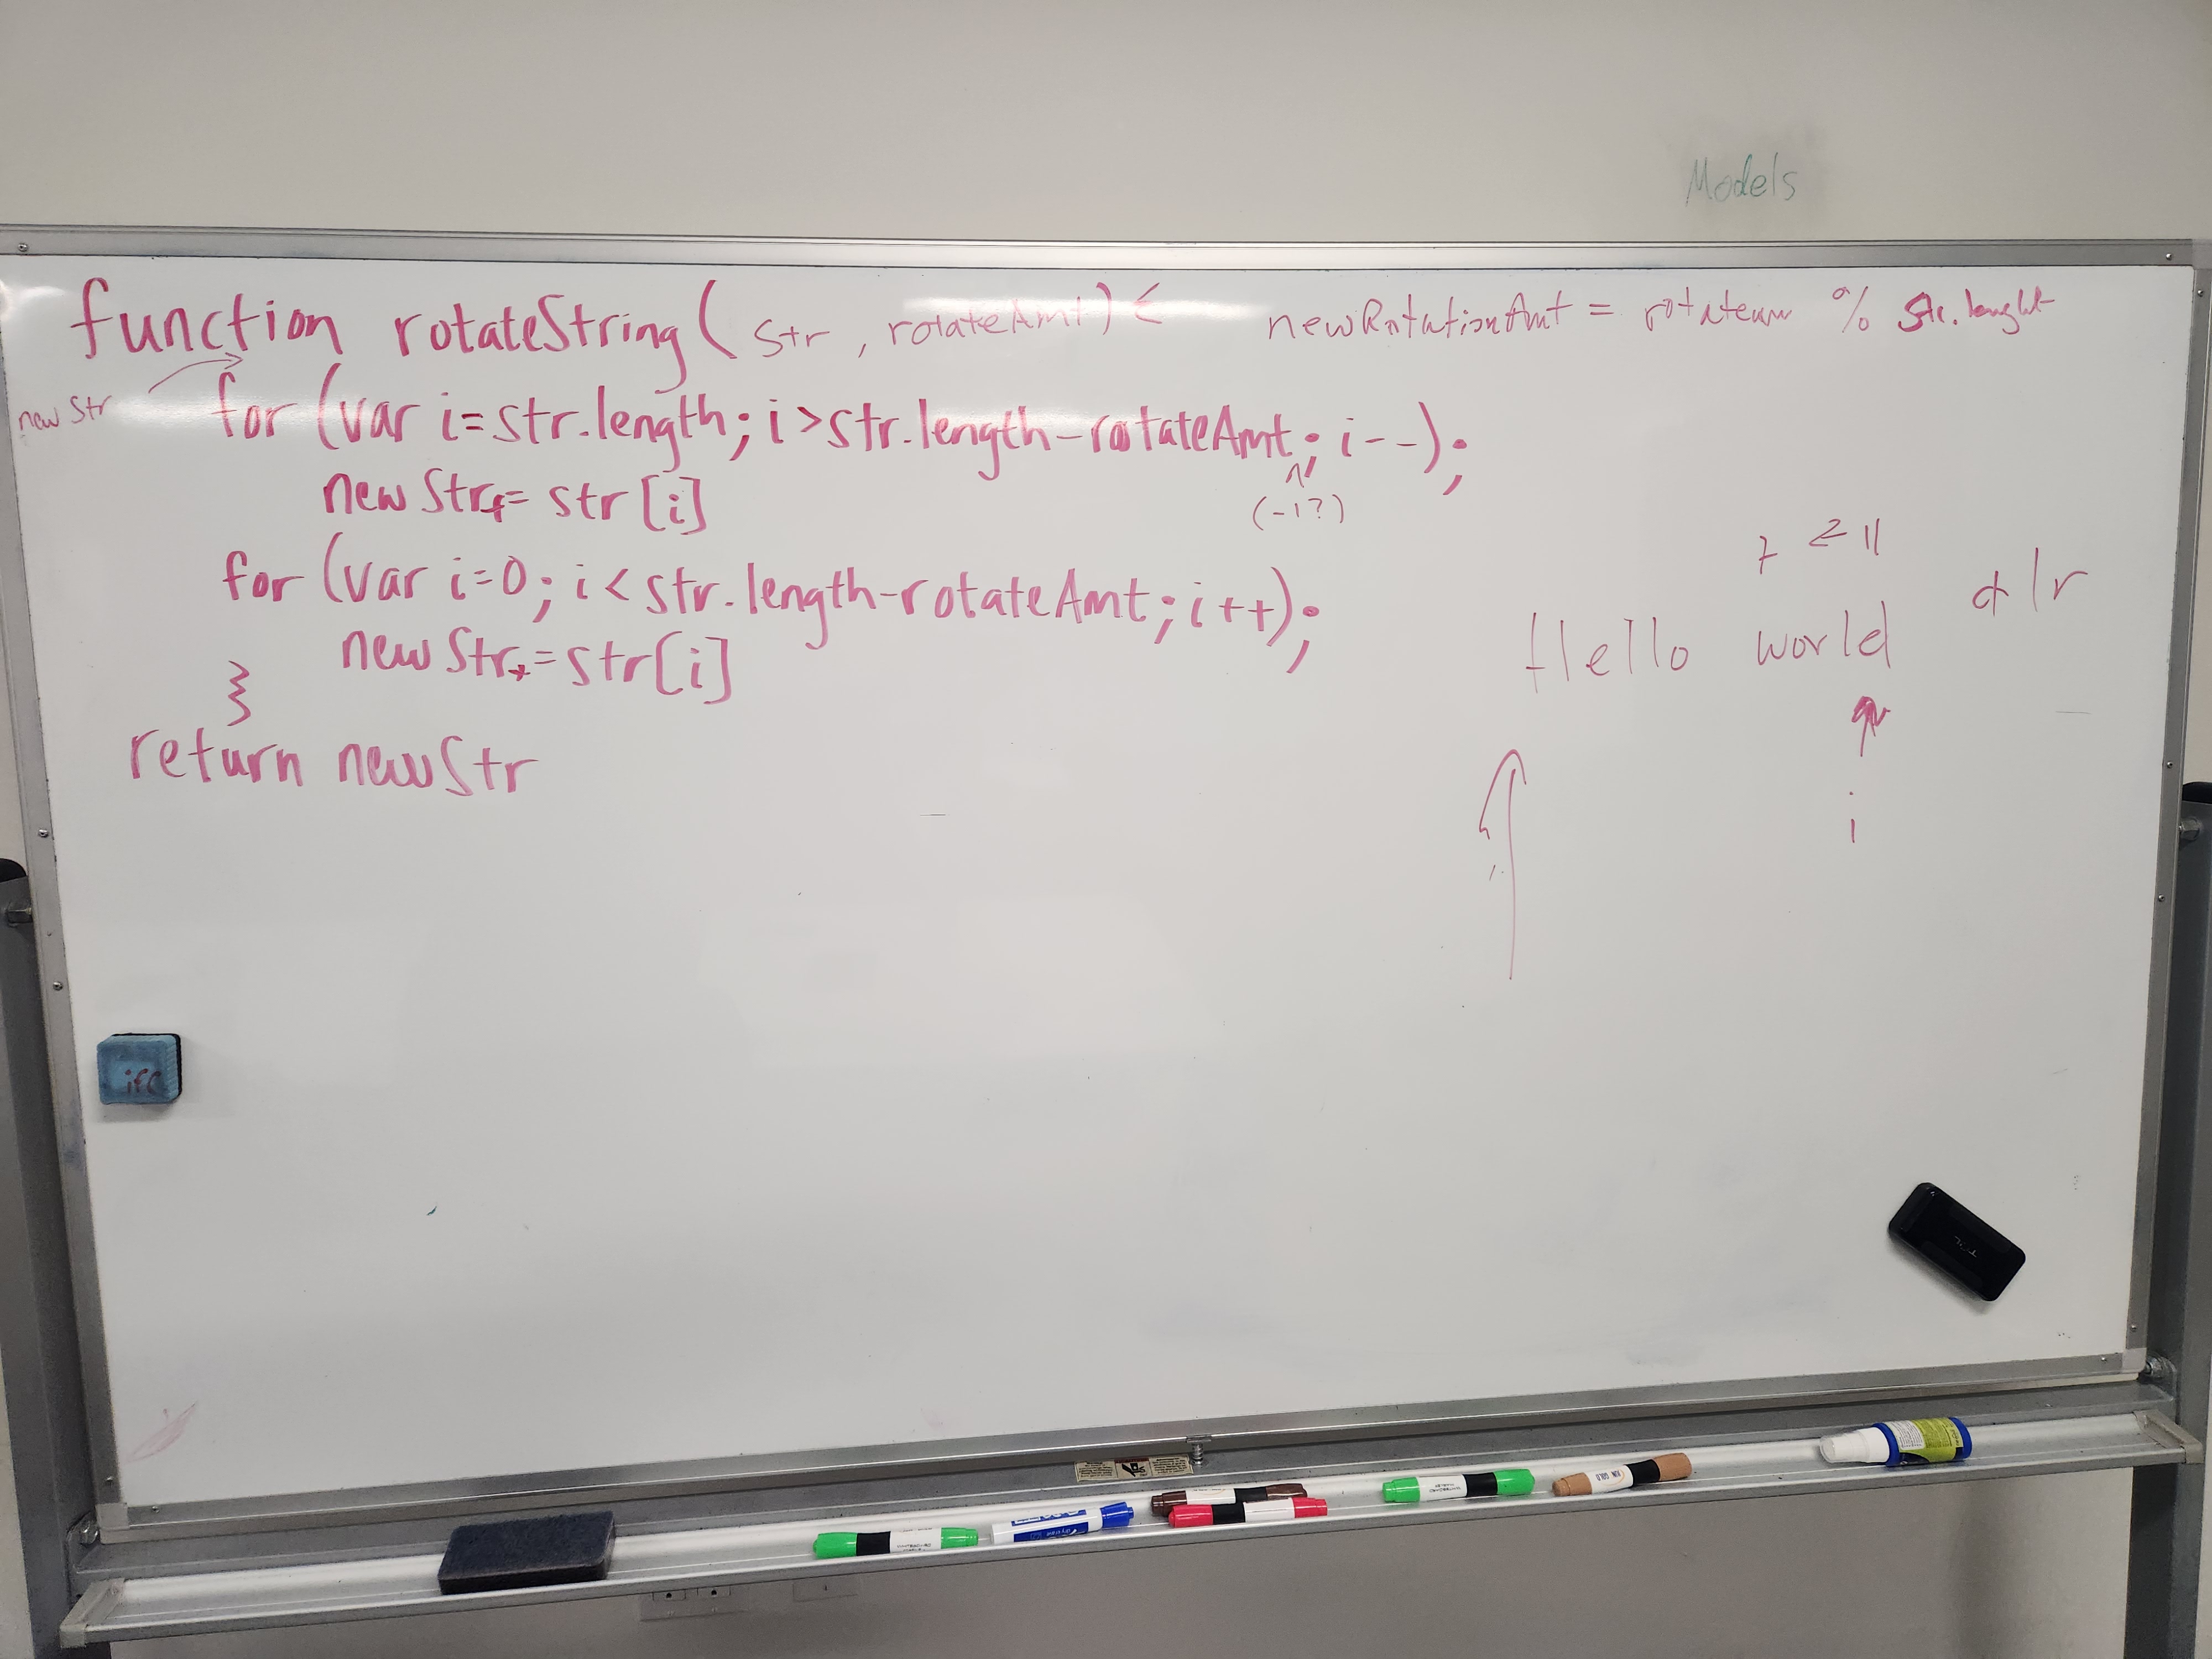 Models
function rotateString( str, rotateAmt) { newRotationAmt = rotateam % str.lenght
newStr
for (var i=str.length; i>str.length-rotateAmt; i--);
(-1?)
newStr+= str[i]
for (var i=0; i<str.length-rotateAmt; i++);
newStr+=str[i]
}
return newStr
11
d l r
Hello world
i
ifC
TCL